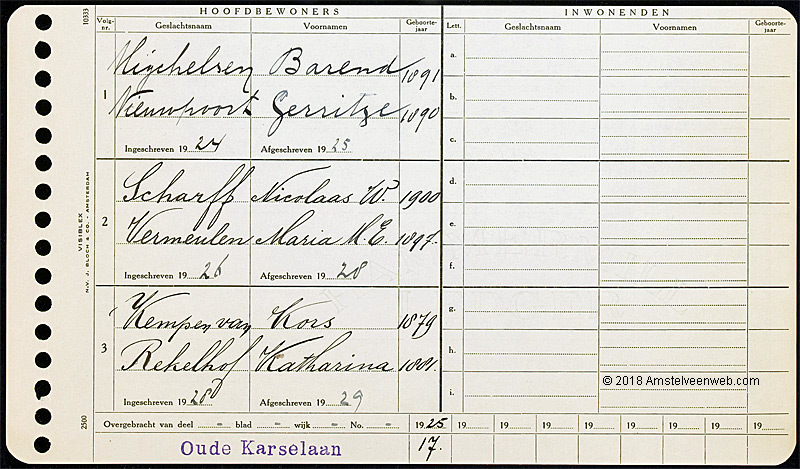 HOOFDBEWONERS INWONENDEN
Volg-nr. Geslachtsnaam Voornamen Geboorte-jaar Lett. Geslachtsnaam Voornamen Geboorte-jaar
10333
a.
Barend 1891
1
b.
Nieuwpoort Gerritze 1890
c.
Ingeschreven 19 24 Afgeschreven 19 25
d.
Scharff Nicolaas W. 1900
2
e.
Vermeulen Maria M.E. 1897.
f.
Ingeschreven 19 26 Afgeschreven 19 28
VISIBLEX
N.V. J. BLOCH & CO. - AMSTERDAM
g.
Kempen van Kors 1879
3
h.
Rekelhof Katharina 1881.
i.
© 2018 Amstelveenweb.com
Ingeschreven 19 28 Afgeschreven 19 29
2500
Overgebracht van deel - blad - wijk - No. - 1925 19 19 19 19 19 19 19 19
Oude Karselaan 17.